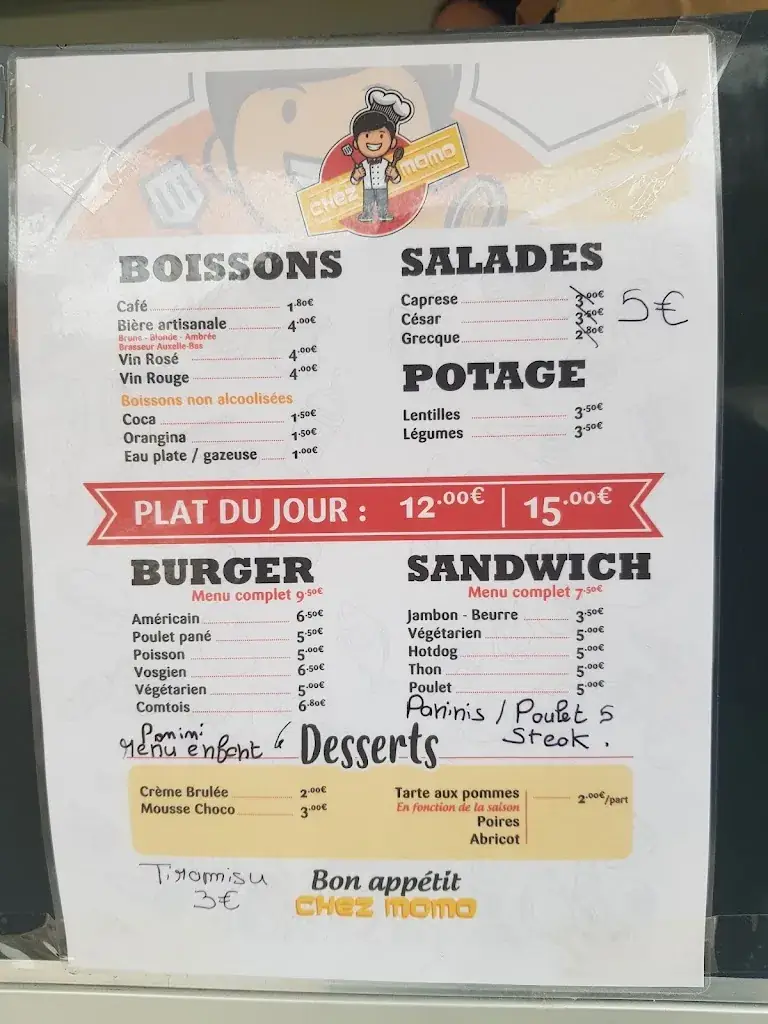 CHEZ MOMO
BOISSONS
Café 1.80€
Bière artisanale 4.00€
Brune - Blonde - Ambrée
Brasseur Auzelle-Bas
Vin Rosé 4.00€
Vin Rouge 4.00€
Boissons non alcoolisées
Coca 1.50€
Orangina 1.50€
Eau plate / gazeuse 1.00€
SALADES
Caprese 3.00€
César 3.50€
Grecque 2.80€
5€
POTAGE
Lentilles 3.50€
Légumes 3.50€
PLAT DU JOUR : 12.00€ | 15.00€
BURGER
Menu complet 9.50€
Américain 6.50€
Poulet pané 5.50€
Poisson 5.00€
Vosgien 6.50€
Végétarien 5.00€
Comtois 6.80€
Panini
Menu enfant 6
SANDWICH
Menu complet 7.50€
Jambon - Beurre 3.50€
Végétarien 5.00€
Hotdog 5.00€
Thon 5.00€
Poulet 5.00€
Paninis / Poulet 5
Steak .
Desserts
Crème Brulée 2.00€
Mousse Choco 3.00€
Tarte aux pommes 2.00€/part
En fonction de la saison
Poires
Abricot
Tiramisu
3€
Bon appétit
CHEZ MOMO